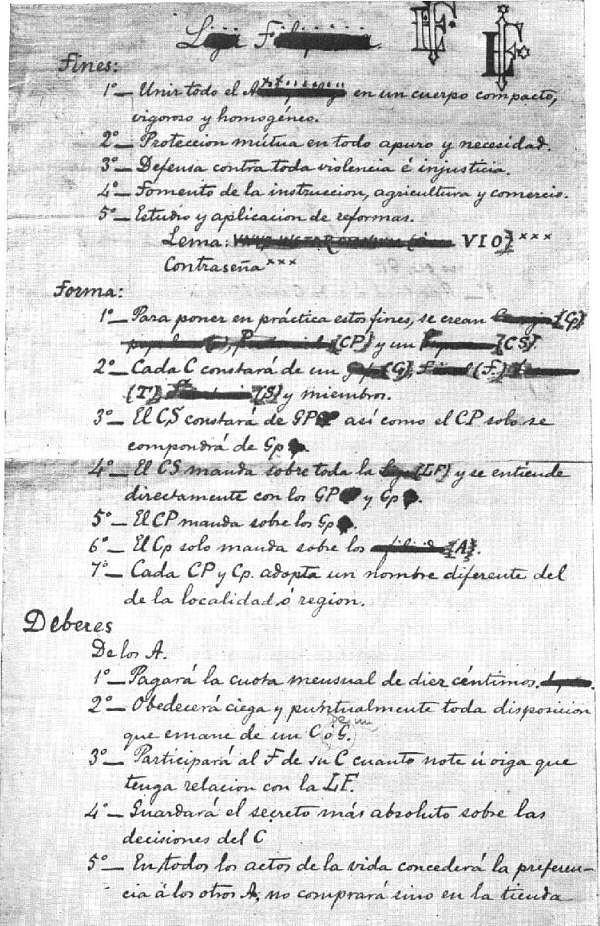 Liga Filipina LF LF
Fines:
1º— Unir todo el A en un cuerpo compacto,
vigoroso y homogéneo.
2º— Proteccion mútua en todo apuro y necesidad.
3º— Defensa contra toda violencia é injusticia.
4º— Fomento de la instruccion, agricultura y comercio.
5º— Estudio y aplicacion de reformas.
Lema: VIO} xxx
Contraseña xxx
Forma:
1º— Para poner en práctica estos fines, se crean {Cp}
{CP} y un {CS}.
2º— Cada C constará de un {G}, {F.}
{T} {S} y miembros.
3º— El CS constará de GP así como el CP solo se
compondrá de Gp
4º— El CS manda sobre toda la Liga {LF} y se entiende
directamente con los GP y Gp
5º— El CP manda sobre los Gp
6º— El Cp solo manda sobre los {A}.
7º— Cada CP y Cp. adopta un nombre diferente del
de la localidad ó region.
Deberes
De los A.
1º— Pagará la cuota mensual de diez céntimos.
2º— Obedecerá ciega y puntualmente toda disposicion
que emane de un C ó G.
3º— Participará al F de su C cuanto note ú oiga que
tenga relacion con la LF.
4º— Guardará el secreto más absoluto sobre las
decisiones del C
5º— En todos los actos de la vida concederá la preferen-
cia á los otros A, no comprará sino en la tienda